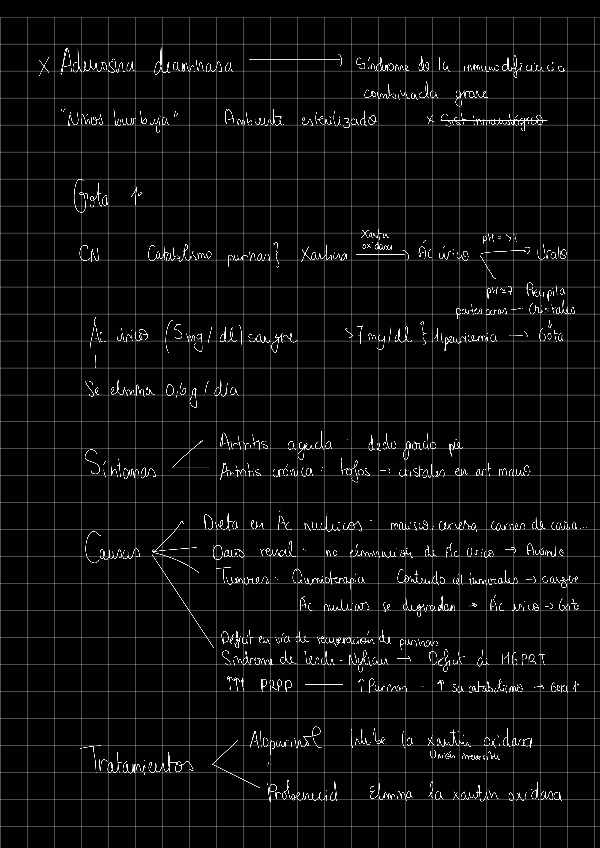 X Adenosina deaminasa → Síndrome de la inmunodeficiencia
combinada grave
"Niños burbuja" Ambiente esterilizado x Sist inmunológico
Gota 1º
CN Catabolismo purinas} Xantina Xantin oxidasa → Ác úrico pH = >7 → Urato
pH = 7 Precipita
→ Cristales
Ác úrico (5 mg / dl) sangre >7 mg/dl } Hiperuricemia → Gota
Se elimina 0,6 g / día
Síntomas Artritis aguda : dedo gordo pie
Artritis crónica : tofos → cristales en art mano
Causas Dieta en Ác nucleicos : marisco, cerveza, carnes de caza...
Daño renal : no eliminación de Ác úrico → Aumento
Tumores : Quimioterapia Contenido cél tumorales → sangre
Ác nucleicos se degradan → Ác úrico → Gota
Déficit en vía de recuperación de purinas
Síndrome de Lesch - Nyhan → Déficit de HGPRT
↑↑↑ PRPP — ↑ Purinas - ↑ su catabolismo → Gota 1º
Tratamientos Alopurinol Inhibe la xantin oxidasa
Unión
Probenecid Elimina la xantin oxidasa